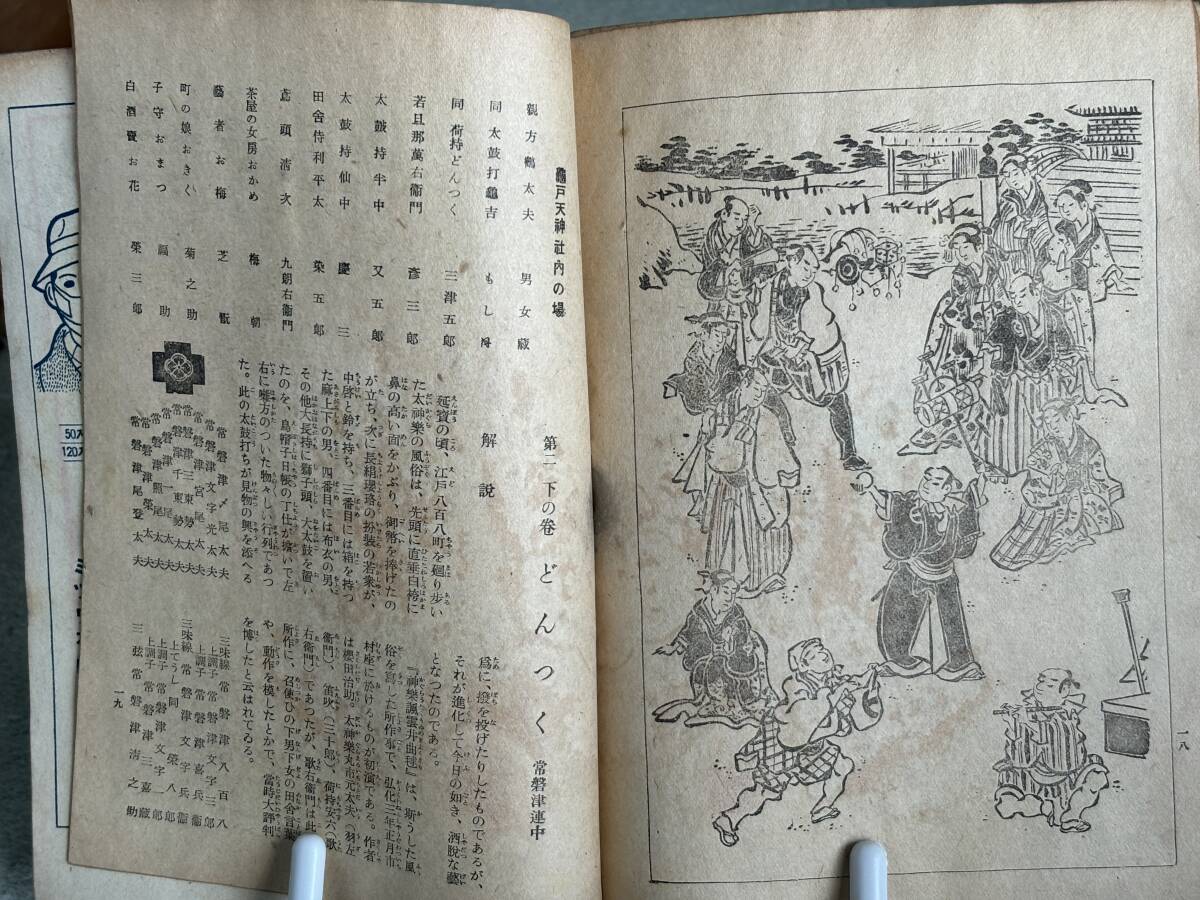 第二 下の巻 どんつく 常磐津連中
龜戸天神社內の場
親方鶴太夫 男女藏
同 太鼓打龜吉 もしほ
同 荷持どんつく 三津五郎
若旦那萬右衞門 彥三郎
太鼓持半中 又五郎
太鼓持仙中 慶三
田舍侍利平太 染五郎
鳶頭淸次 九朗右衞門
茶屋の女房おかめ 梅朝
藝者お梅 芝翫
町の娘おきく 菊之助
子守おまつ 福助
白酒賣お花 榮三郎
解說
延寶の頃、江戶八百八町を廻り步い
た太神樂の風俗は、先頭に直垂白袴に
鼻の高い面をかぶり、御幣を捧げたの
が立ち、次に長絹瓔珞の扮裝の若衆が、
中啓と鈴を持ち、三番目には箱を持つ
た麻上下の男、四番目には布衣の男、
その他大長持に獅子頭、大太鼓を置い
たのを、烏帽子日帳の丁仕が擔いで左
右に囃方のついた物々しい行列であつ
た。此の太鼓打ちが見物の興を添へる
爲に撥を投げたりしたものであるが、
それが進化して今日の如き、洒脫な藝
となつたのである。
『神樂諷雲井曲毬』は、斯うした風
俗を寫した所作事で、弘化三年正月市
村座に於けるものが初演である。作者
は櫻田治助。太神樂丸市元太夫(羽左
衞門)、笛吹(三十郎)荷持安六(歌
右衞門)であつたが、歌右衞門は此
所作に、召使ひの下男下女の田舍言葉
や、動作を模したとかで、當時大評判
を博したと云はれてゐる。
常磐津〆尾太夫
常磐津文字光太夫
常磐津宮尾太夫
常磐津三東勢太夫
常磐津千東勢太夫
常磐津照尾太夫
常磐津榮太夫
常磐津尾登太夫
三味線 常磐津八百八
上調子 常磐津文字三郎
上調子 常磐津喜兵衞
三味線 常磐津文字兵衞
上てうし 同 榮八郎
上調子 常磐津文字一郎
常磐津三嘉藏
三弦 常磐津淸之助
一九
一八
50入
120入